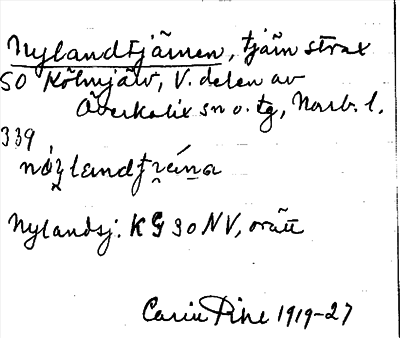 Nylandtjärnen, tjärn strax
SO Kölmjärv, V. delen av
Överkalix sn o. tg, Norb. l.
339
Nylandsj. KG 30 NV, orätt
Carin Pihl 1919-27